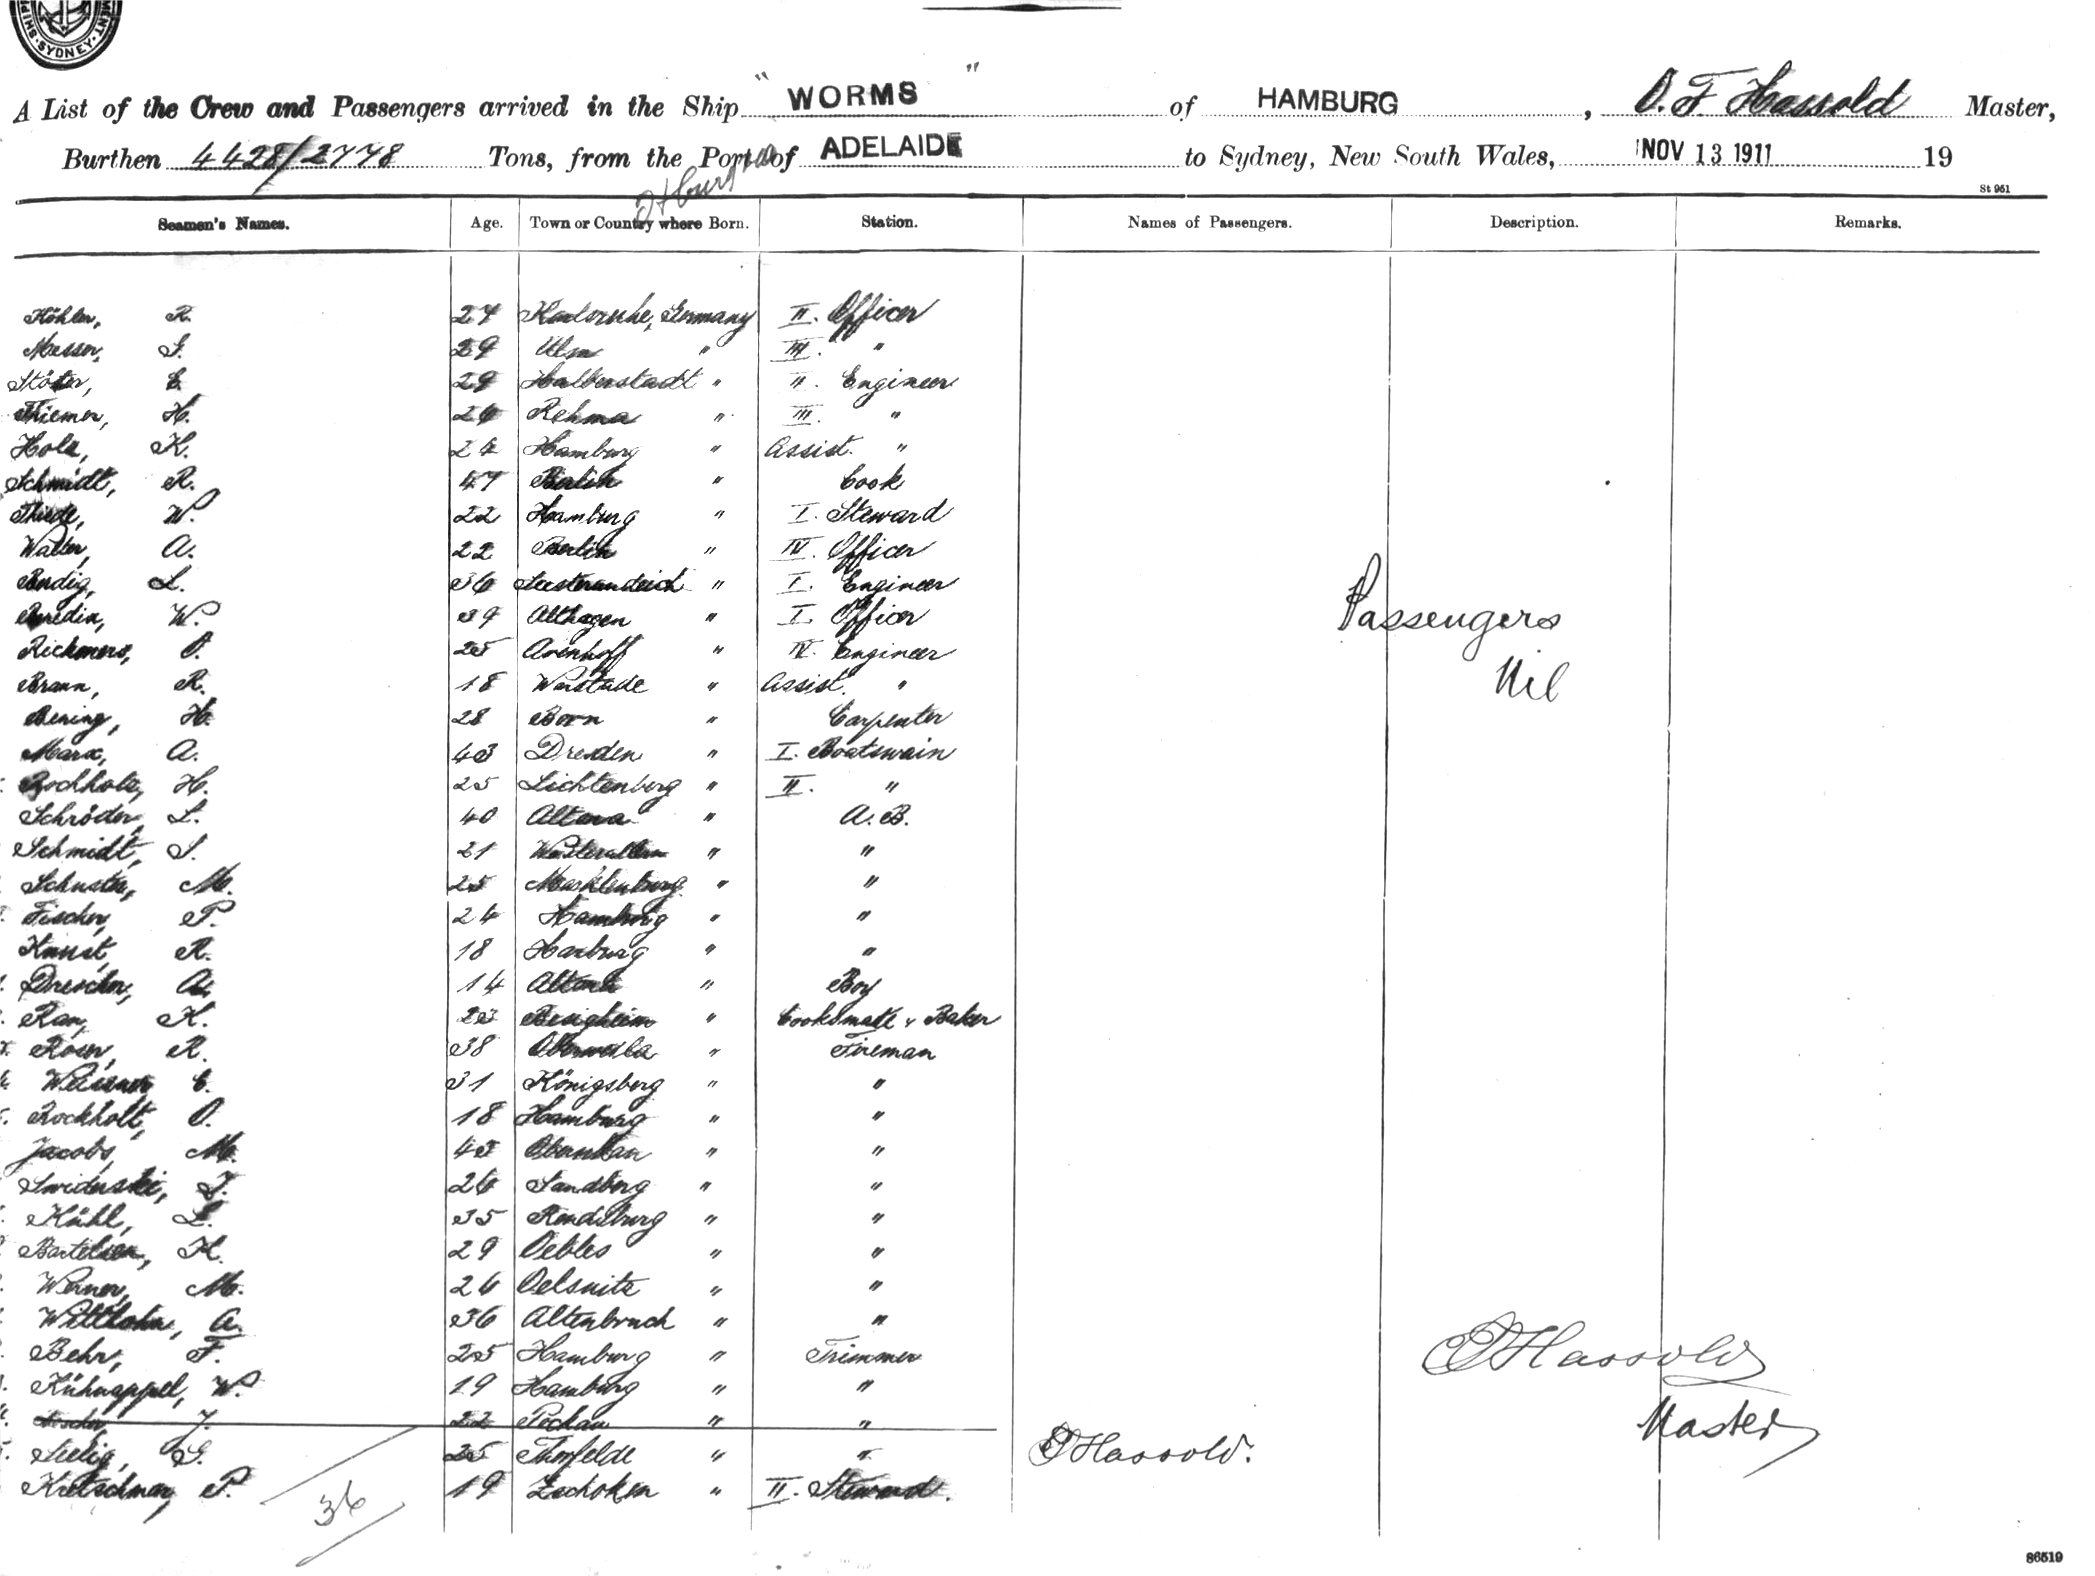 SHIPPING
MENT. SYDNEY.
A List of the Crew and Passengers arrived in the Ship "WORMS" of HAMBURG, O. F. Hassold Master,
Burthen 4428/2778 Tons, from the Port of ADELAIDE to Sydney, New South Wales, NOV 13 1911 19
St 951
Seamen's Names. Age. Town or Country where Born. Station. Names of Passengers. Description. Remarks.
Köhler, R. 27 Karlsruhe, Germany II. Officer
Messer, 29 Ulm " III. "
Stöter, E. 29 Halberstadt " II. Engineer
Thiemer, H. 26 Rehma " III. "
Hola, K. 24 Hamburg " Assist. "
Schmidt, R. 47 Berlin " Cook
Thiede, W. 22 Hamburg " I. Steward
Walter, A. 22 Berlin " IV. Officer
Budig, L. 36 " I. Engineer
W. 39 Althagen " I. Officer
Rickmers, O. 25 Arenhoff " IV. Engineer
Braun, R. 18 Warstade " Assist. "
Bening, H. 28 Born " Carpenter
Marx, A. 43 Dresden " I. Boatswain
Rochholz, H. 25 Lichtenberg " II. "
Schröder, L. 40 Altona " A. B.
Schmidt, 21 " "
Schuster, M. 25 Mecklenburg " "
Fischer, P. 24 Hamburg " "
Knust, R. 18 Harburg " "
Drescher, A. 14 Altona " Boy
Rau, K. 23 Besigheim " Cooksmate & Baker
Roser, R. 38 " Fireman
E. 31 Königsberg " "
Rockholt, O. 18 Hamburg " "
Jacobs, M. 43 " "
Swiderski, 26 Sandberg " "
Kühl, L. 35 Rendsburg " "
Bartelsen, H. 29 Oebles " "
Werner, M. 26 Oelsnitz " "
Wittkohn, A. 36 Altenbruch " "
Behr, F. 25 Hamburg " Trimmer
Kühnappel, W. 19 Hamburg " "
J. 22 Pockau " "
Seelig, G. 25 " "
Kretschmar, P. 19 Zschoken " II. Steward.
36
Passengers
Nil
O Hassold
Master
O Hassold.
86519